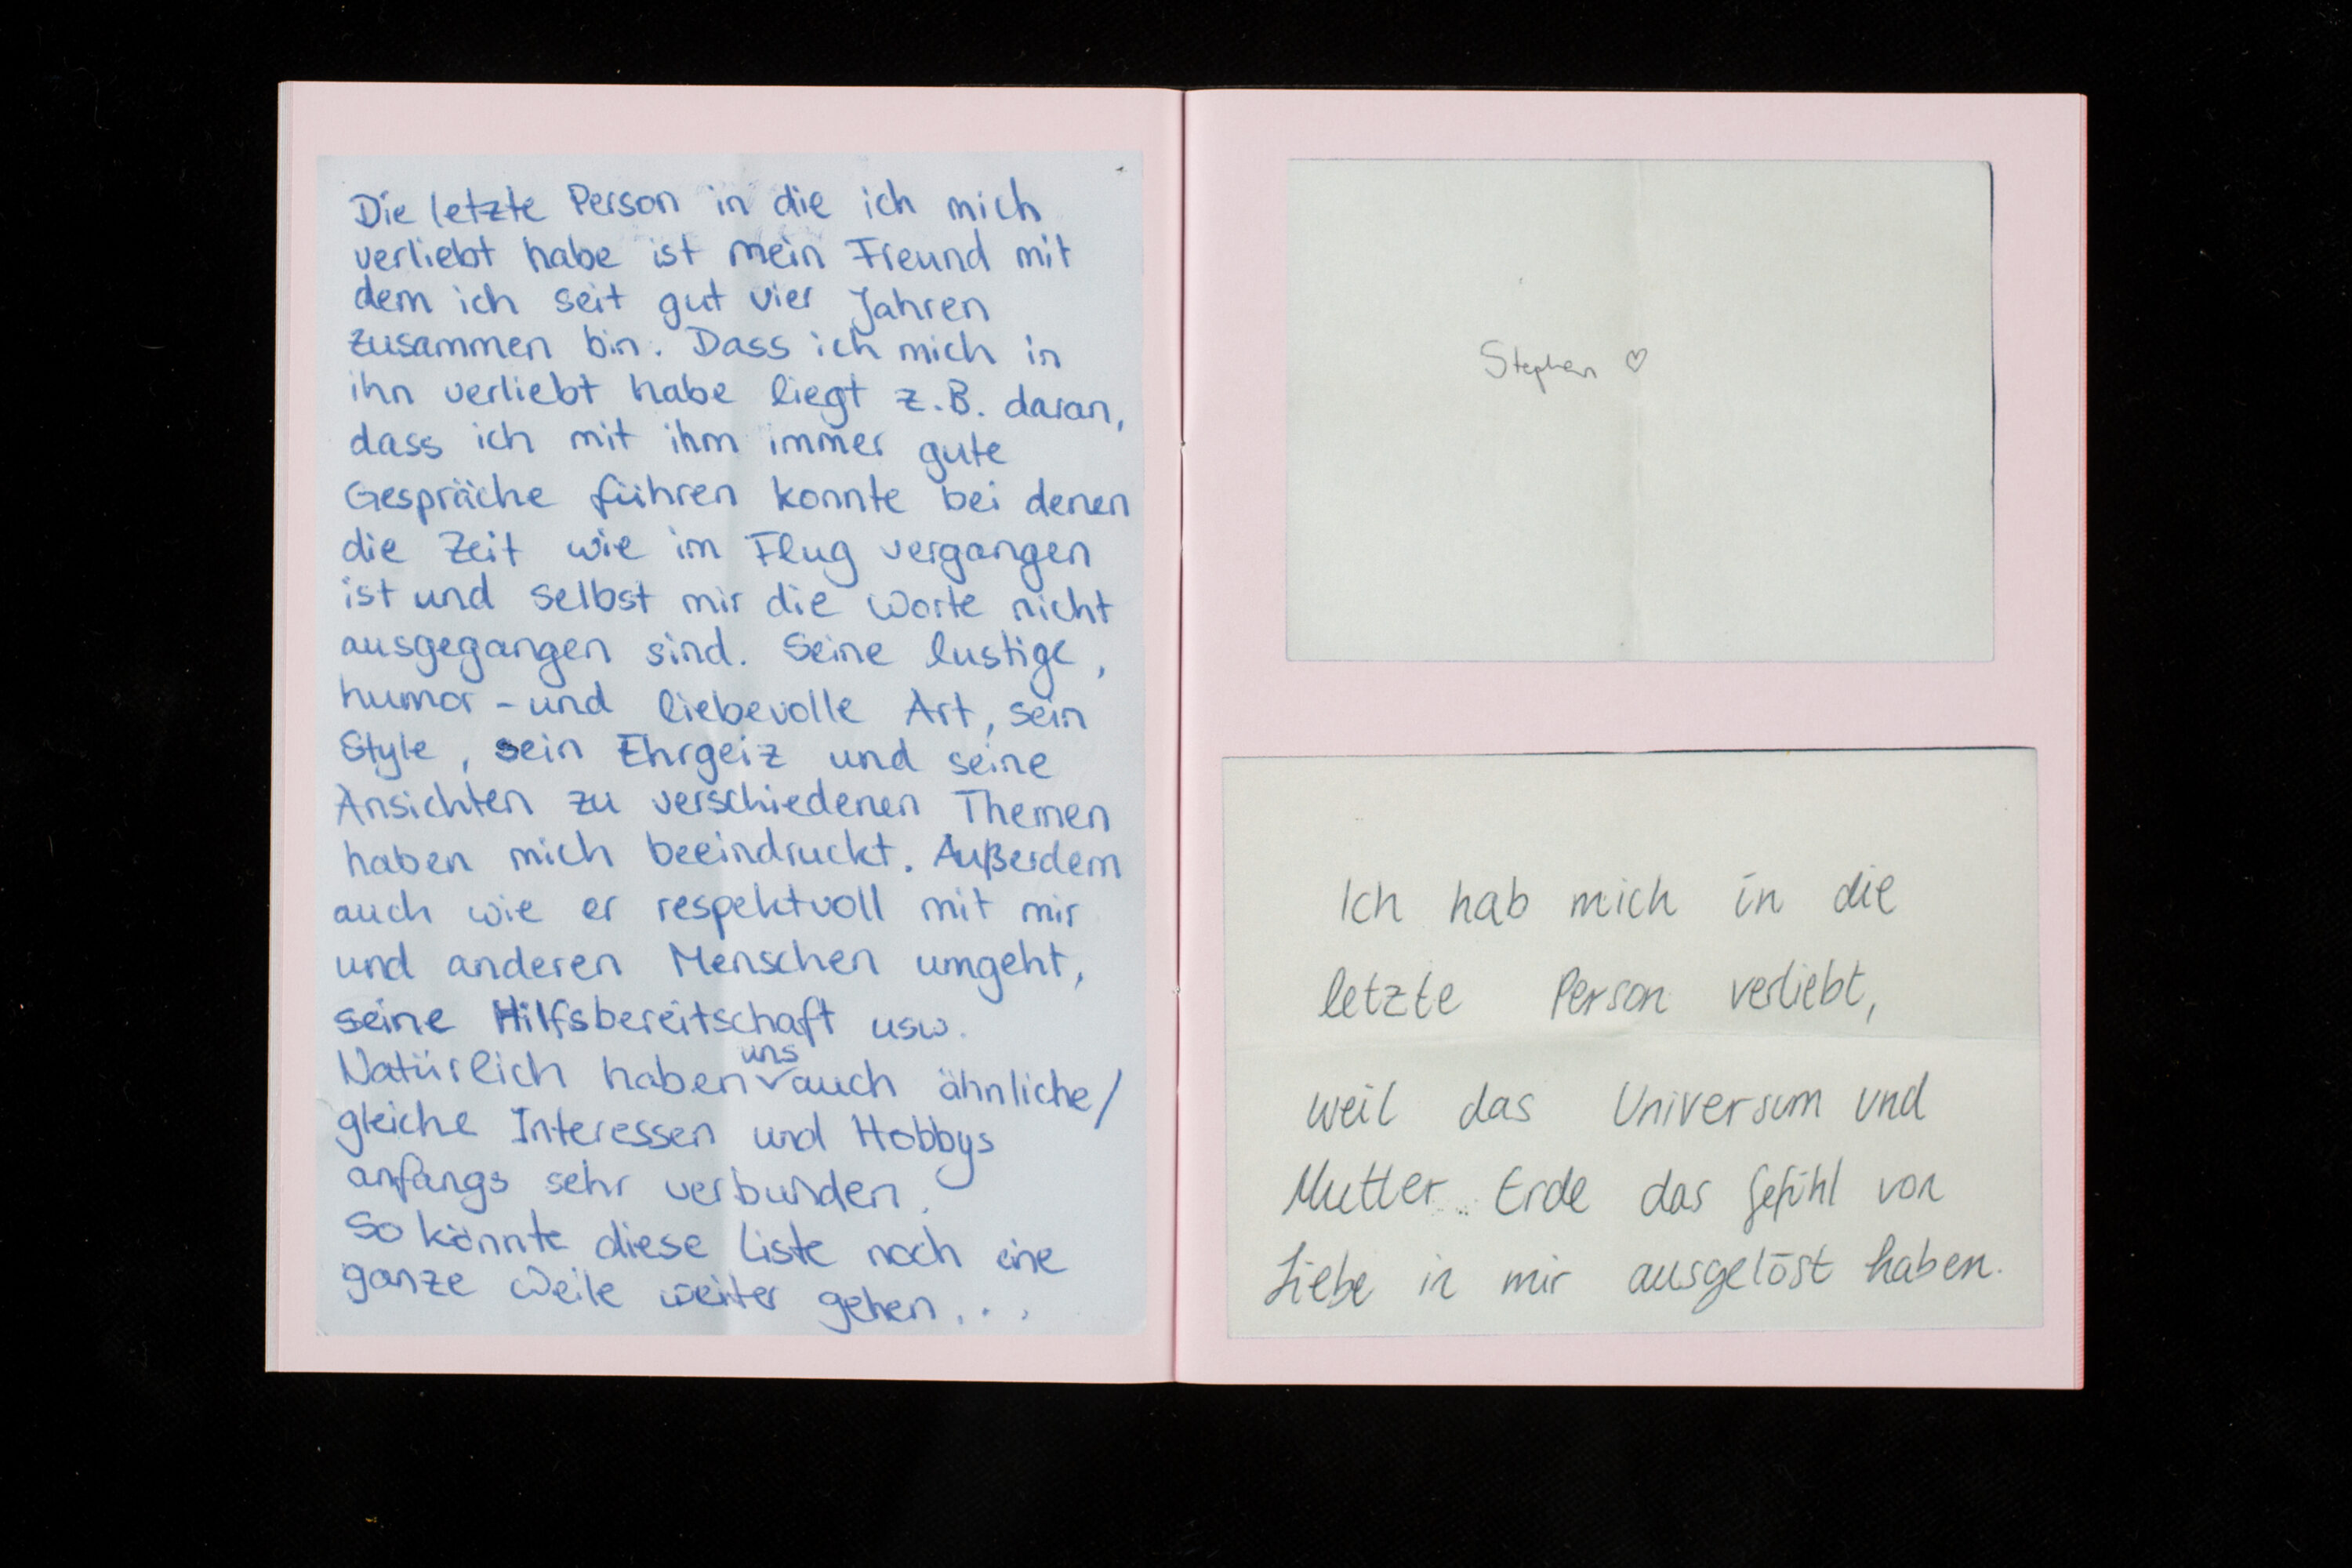 Die letzte Person in die ich mich
verliebt habe ist mein Freund mit
dem ich seit gut vier Jahren
zusammen bin. Dass ich mich in
ihn verliebt habe liegt z.B. daran,
dass ich mit ihm immer gute
Gespräche führen konnte bei denen
die Zeit wie im Flug vergangen
ist und selbst mir die Worte nicht
ausgegangen sind. Seine lustige,
humor-und liebevolle Art, sein
Style, sein Ehrgeiz und seine
Ansichten zu verschiedenen Themen
haben mich beeindruckt. Außerdem
auch wie er respektvoll mit mir
und anderen Menschen umgeht,
seine Hilfsbereitschaft usw.
Natürlich haben uns auch ähnliche/
gleiche Interessen und Hobbys
anfangs sehr verbunden.
So könnte diese Liste noch eine
ganze Weile weiter gehen...
Stephan ♡
Ich hab mich in die
letzte Person verliebt,
weil das Universum und
Mutter Erde das Gefühl von
Liebe in mir ausgelöst haben.